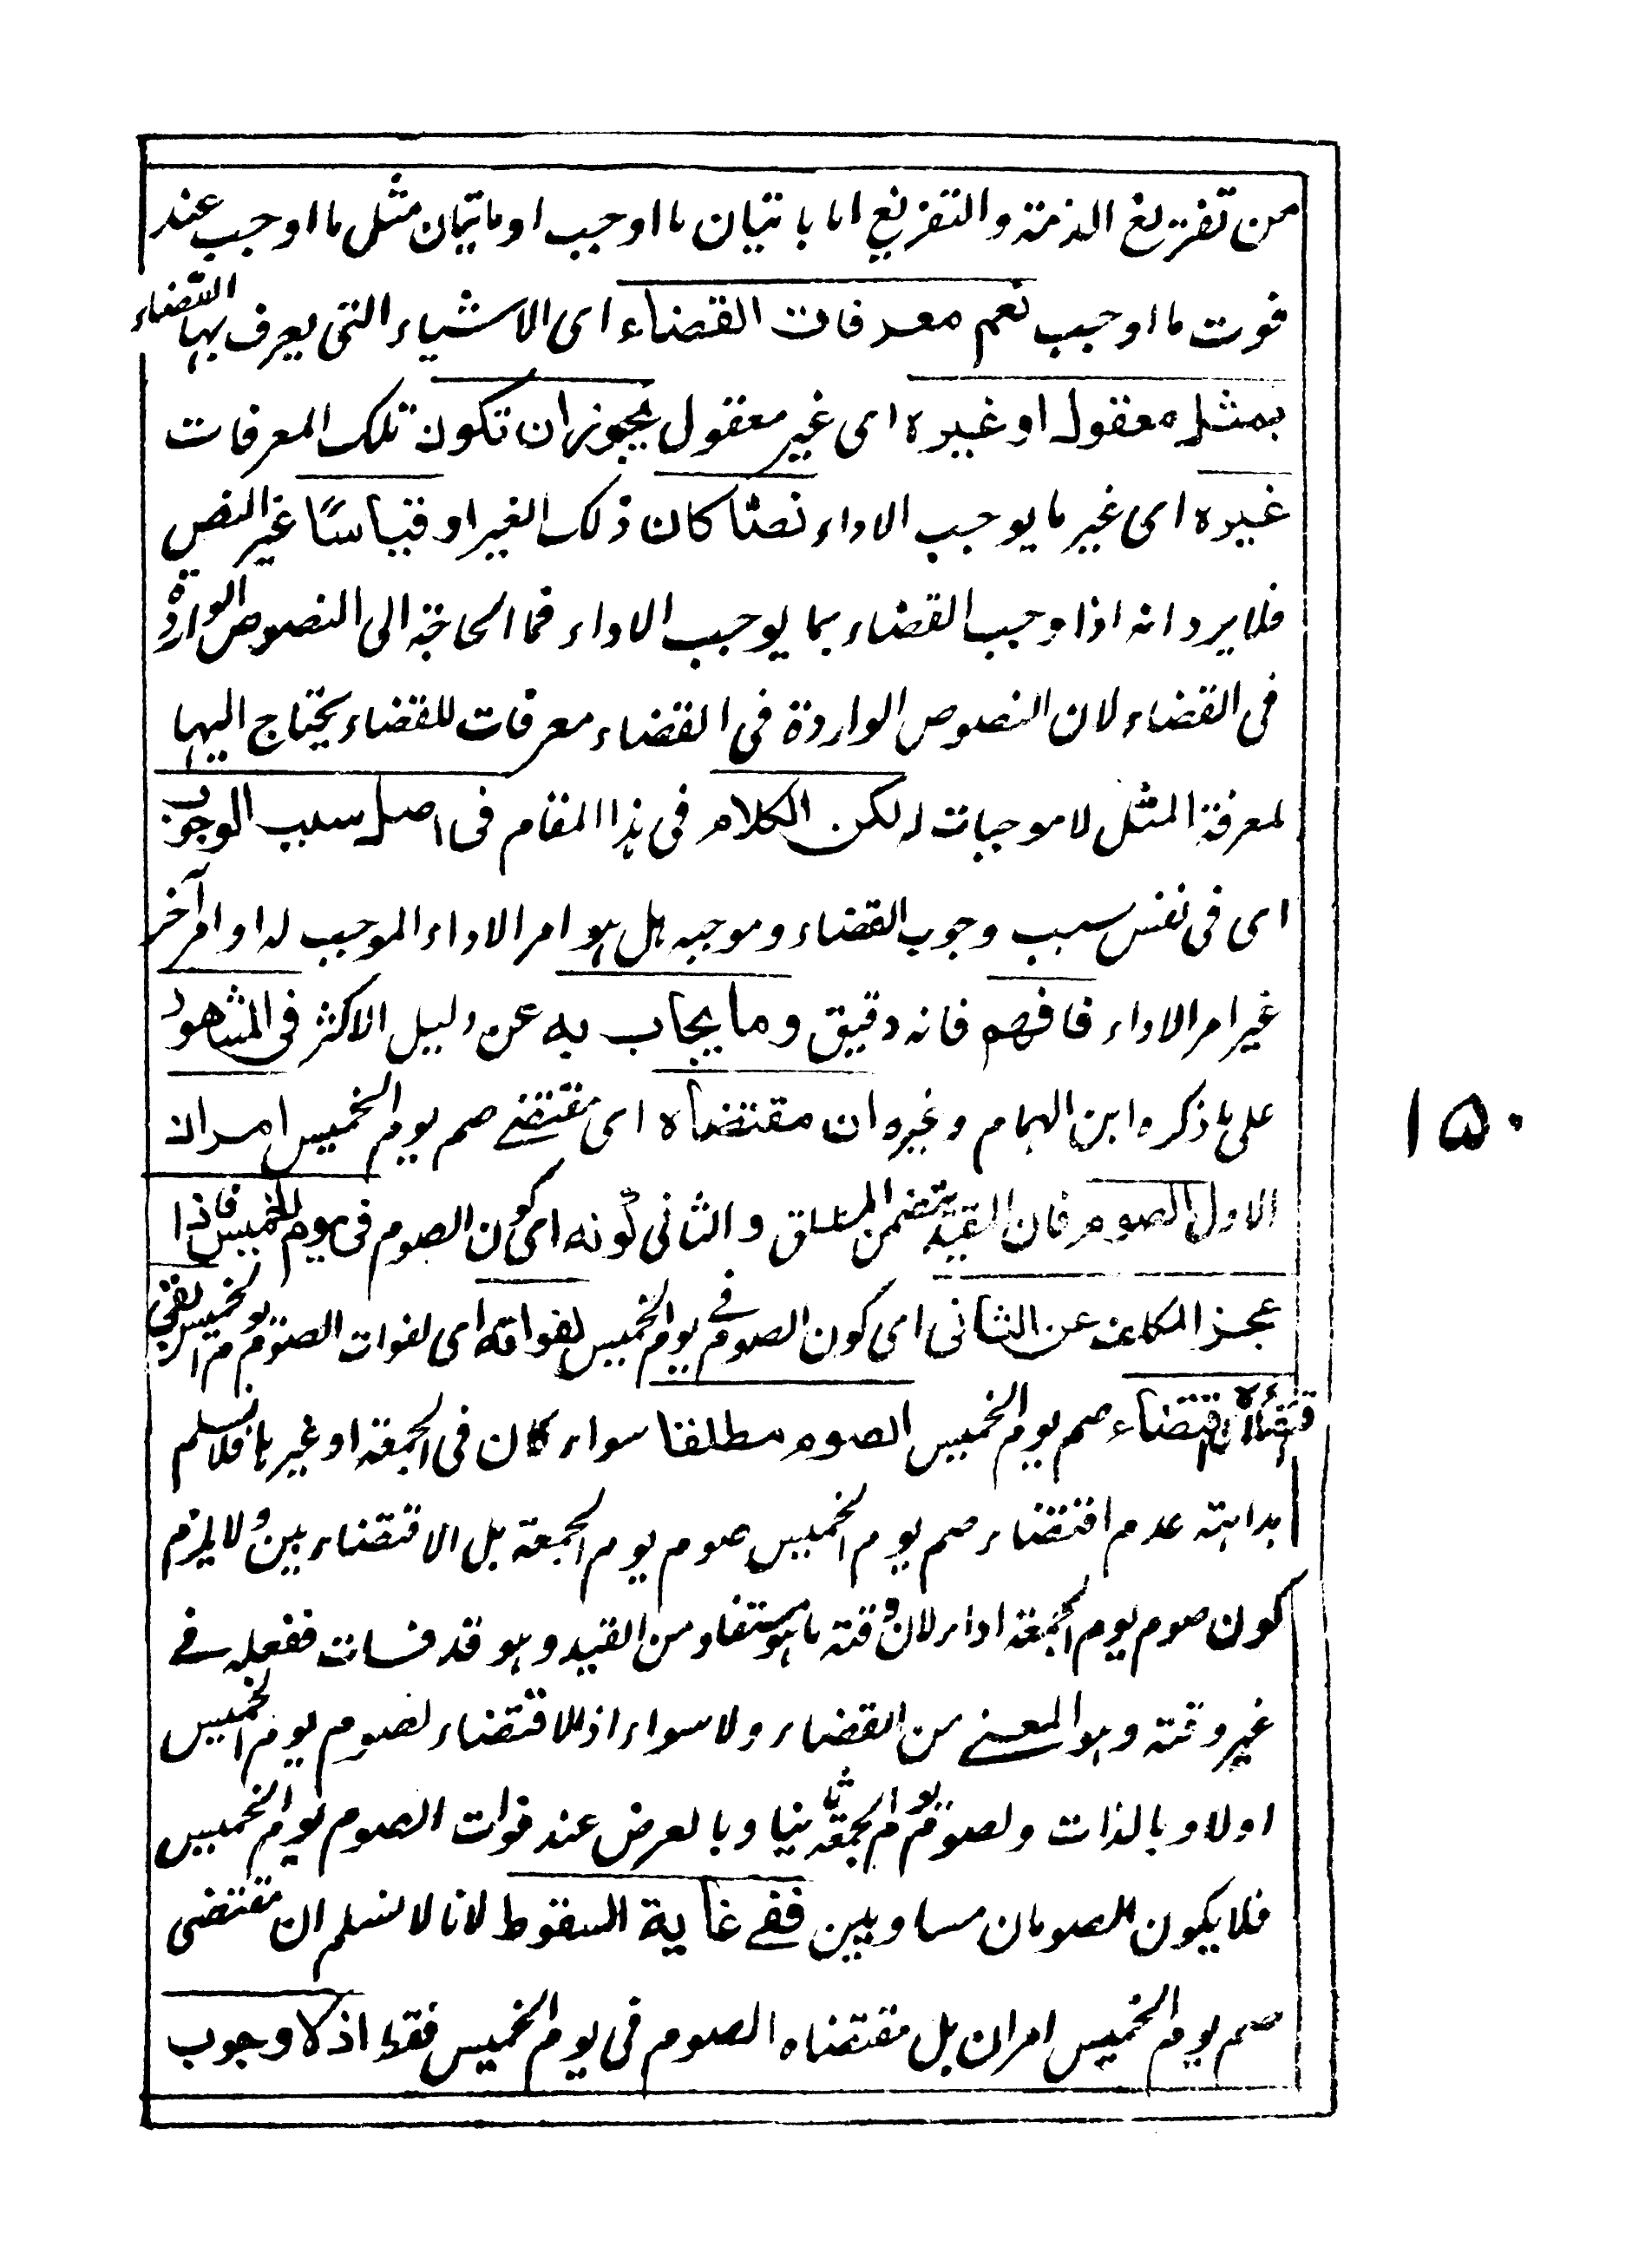 من تفريغ الذمة والتفريغ اما باتيان ما اوجب او باتيان مثل ما اوجب عند
فوت ما اوجب نعم معرفات القضاء اى الاشياء التى يعرف بها القضاء
بمثل معقول او غيره اى غير معقول يجوز ان تكون تلك المعرفات
غيره اى غير ما يوجب الاداء نصّا كان ذلك الغير او قياسًا غير النص
فلا يرد انه اذا وجب القضاء بما يوجب الاداء فما الحاجة الى النصوص الواردة
فى القضاء لان النصوص الواردة فى القضاء معرفات للقضاء يحتاج اليها
لمعرفة المثل لا موجبات له لكن الكلام فى هذا المقام فى اصل سبب الوجوب
اى فى نفس سبب وجوب القضاء وموجبه هل هو امر الاداء الموجب له او امر آخر
غير امر الاداء فافهم فانه دقيق وما يجاب به عن دليل الاكثر فى المشهور
على ما ذكره ابن الهمام وغيره ان مقتضاه اى مقتضے صم يوم الخميس امران
الاول الصوم فان المقيد يتضمن المطلق والثانى كونه اى كون الصوم فى يوم الخميس فاذا
عجز المكلف عن الثانى اى كون الصوم فے يوم الخميس لفواته اى لفوات الصوم يوم الخميس بقى
اقتضاء صم يوم الخميس الصوم مطلقا سواء كان فى الجمعة او غيرها فلا نسلم
بداهة عدم اقتضاء صم يوم الخميس صوم يوم الجمعة بل الاقتضاء بين ولا يلزم
كون صوم يوم الجمعة اداء لان وقته ما هو مستفاد من القيد وهو قد فات ففعله فے
غير وقته وهو المعنے من القضاء ولا سواء اذ الاقتضاء لصوم يوم الخميس
اولا وبالذات ولصوم يوم الجمعة ثانيا وبالعرض عند فوات الصوم يوم الخميس
فلا يكون الصومان مساويين ففے غاية السقوط لانا لا نسلم ان مقتضى
صم يوم الخميس امران بل مقتضاه الصوم فى يوم الخميس فقط اذ لا وجوب
١٥٠